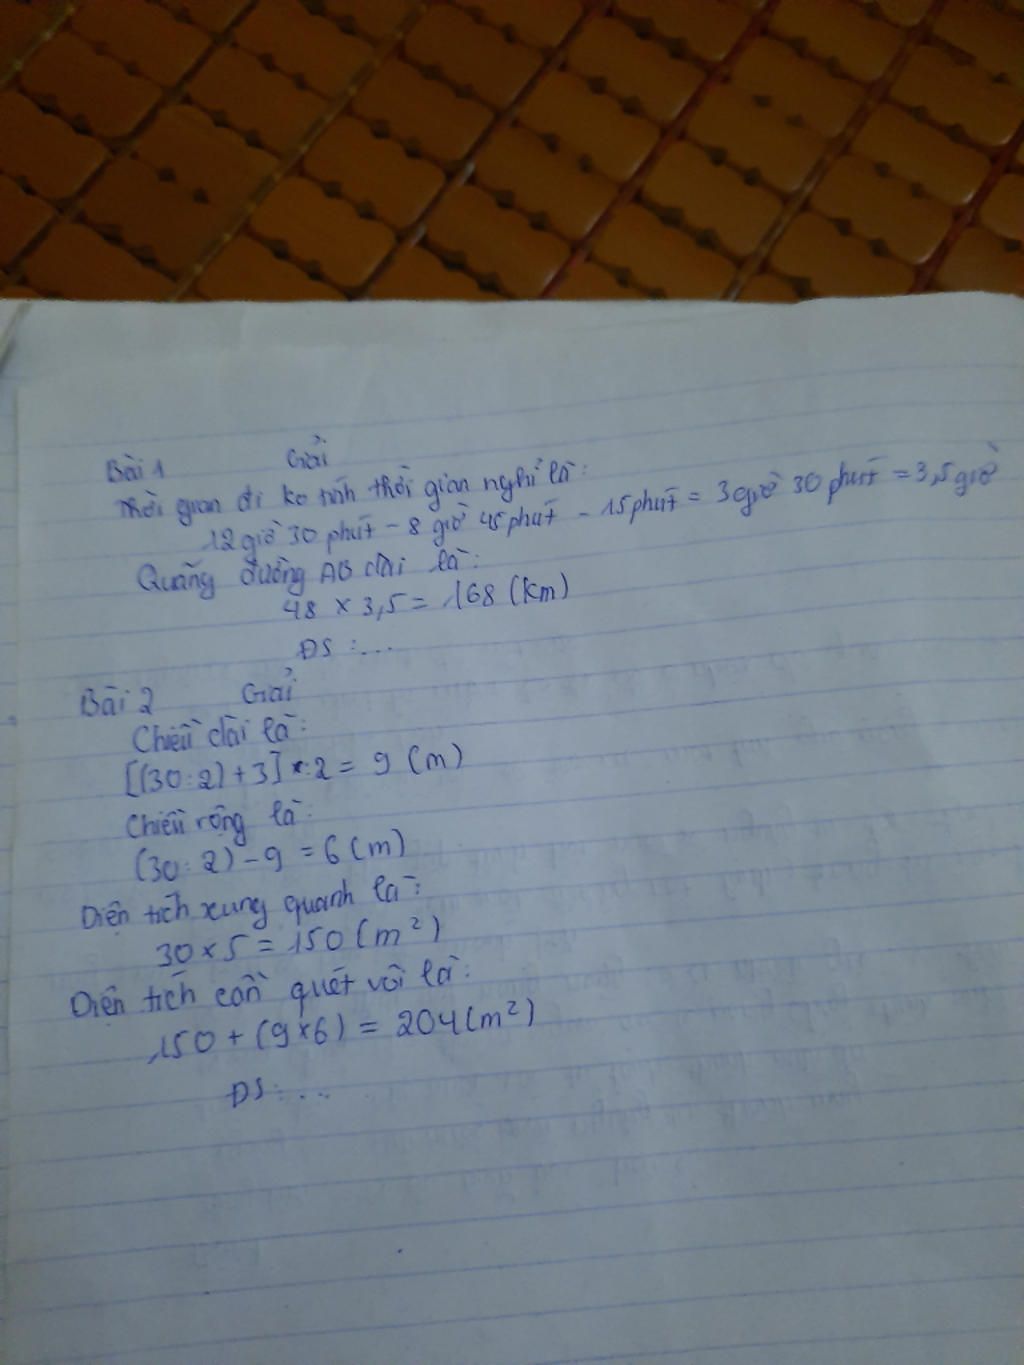 Bài 1 Giải
Thời gian đi ko tính thời gian nghỉ là:
12 giờ 30 phút - 8 giờ 45 phút - 15 phút = 3 giờ 30 phút = 3,5 giờ
Quãng đường AB dài là:
48 × 3,5 = 168 (km)
ĐS : ...
Bài 2 Giải
Chiều dài là:
[(30:2)+3] : 2 = 9 (m)
Chiều rộng là:
(30:2) - 9 = 6 (m)
Diện tích xung quanh là:
30 × 5 = 150 (m²)
Diện tích cần quét vôi là:
150 + (9×6) = 204 (m²)
ĐS : ...